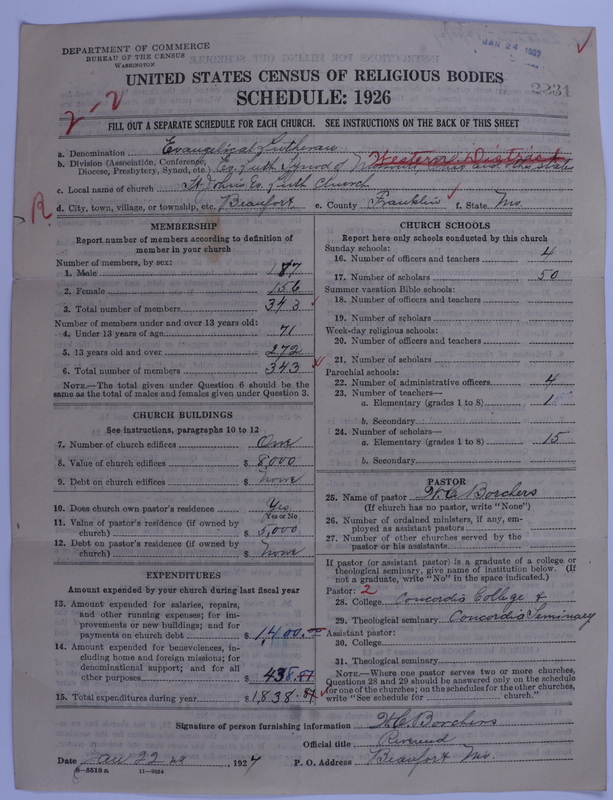 DEPARTMENT OF COMMERCE
BUREAU OF THE CENSUS
WASHINGTON
JAN 24
2231
UNITED STATES CENSUS OF RELIGIOUS BODIES
SCHEDULE: 1926
2-2
FILL OUT A SEPARATE SCHEDULE FOR EACH CHURCH. SEE INSTRUCTIONS ON THE BACK OF THIS SHEET
a. Denomination Evangelical Lutheran
b. Division (Association, Conference, Diocese, Presbytery, Synod, etc.) Ev. Luth Synod of Missouri, Ohio and Other States
Western District
c. Local name of church St Johns Ev. Luth Church
R.
d. City, town, village, or township, etc. Beaufort e. County Franklin f. State Mo.
MEMBERSHIP
Report number of members according to definition of
member in your church
Number of members, by sex:
1. Male 187
2. Female 156
3. Total number of members 343
Number of members under and over 13 years old:
4. Under 13 years of age 71
5. 13 years old and over 272
6. Total number of members 343
NOTE.—The total given under Question 6 should be
same as the total of males and females given under Question 3.
CHURCH BUILDINGS
See instructions, paragraphs 10 to 12
7. Number of church edifices One
8. Value of church edifices $ 8,000
9. Debt on church edifices $ none
10. Does church own pastor's residence Yes
Yes or No
11. Value of pastor's residence (if owned by
church) $ 5,000
12. Debt on pastor's residence (if owned by
church) $ None
EXPENDITURES
Amount expended by your church during last fiscal year
13. Amount expended for salaries, repairs,
and other running expenses; for im-
provements or new buildings; and for
payments on church debt $ 1,400.00
14. Amount expended for benevolences, in-
cluding home and foreign missions; for
denominational support; and for all
other purposes $ 438.87
15. Total expenditures during year $ 1,838.87
CHURCH SCHOOLS
Report here only schools conducted by this church
Sunday schools:
16. Number of officers and teachers 4
17. Number of scholars 50
Summer vacation Bible schools:
18. Number of officers and teachers
19. Number of scholars
Week-day religious schools:
20. Number of officers and teachers
21. Number of scholars
Parochial schools:
22. Number of administrative officers 4
23. Number of teachers—
a. Elementary (grades 1 to 8) 1
b. Secondary
24. Number of scholars—
a. Elementary (grades 1 to 8) 15
b. Secondary
PASTOR
25. Name of pastor H. C. Borchers
(If church has no pastor, write "None")
26. Number of ordained ministers, if any, em-
ployed as assistant pastors
27. Number of other churches served by the
pastor or his assistants
If pastor (or assistant pastor) is a graduate of a college or
theological seminary, give name of institution below. (If
not a graduate, write "No" in the space indicated.)
Pastor: 2
28. College Concordia College &
29. Theological seminary Concordia Seminary
Assistant pastor:
30. College
31. Theological seminary
NOTE.—Where one pastor serves two or more churches,
Questions 28 and 29 should be answered only on the schedule
for one of the churches; on the schedules for the other churches,
write "See schedule for church."
Signature of person furnishing information H. C. Borchers
Official title Reverend
Date Jan 22 nd, 1927 P. O. Address Beaufort Mo.
8-5518 a 11-9054